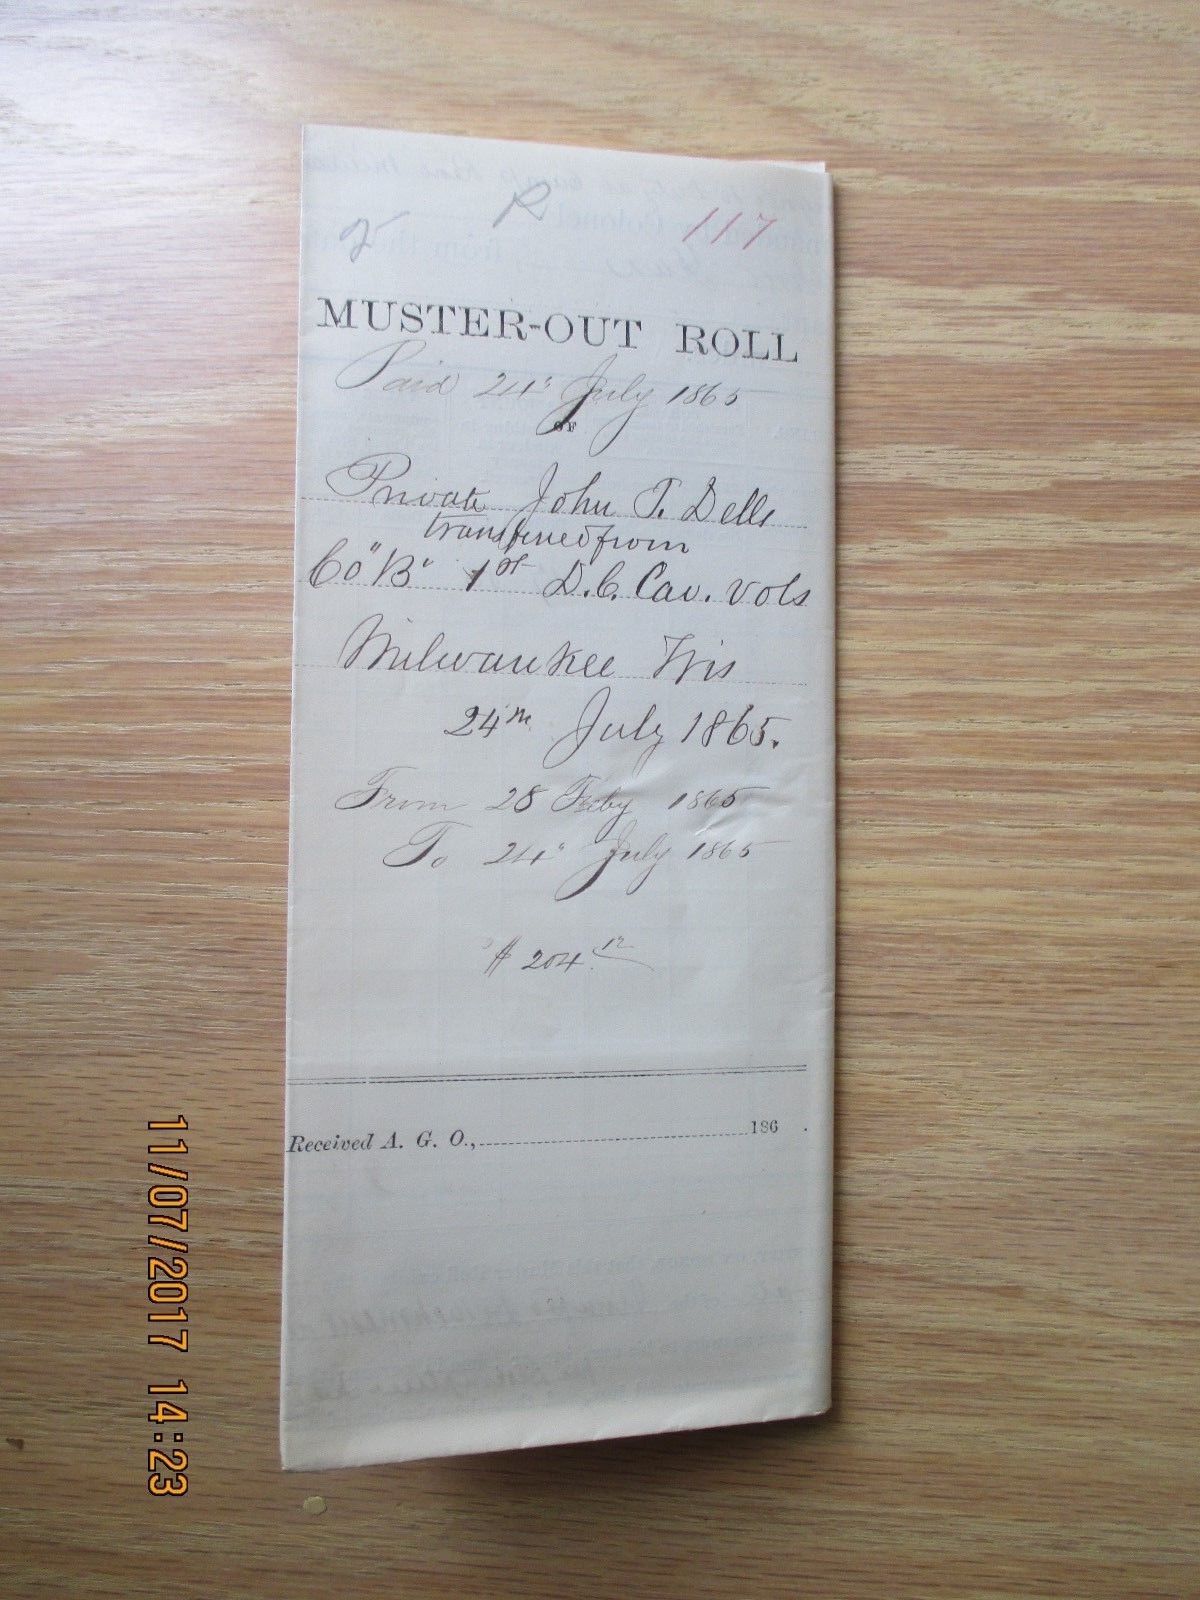 2 R 117
MUSTER-OUT ROLL
Paid 24" July 1865
OF
Private John T. Dells
transferred from
Co "B" 1st D.C. Cav. Vols
Milwaukee Wis
24th July 1865.
From 28 Feby 1865
To 24" July 1865
$ 204.12
Received A. G. O., 186 .
11/07/2017 14:23